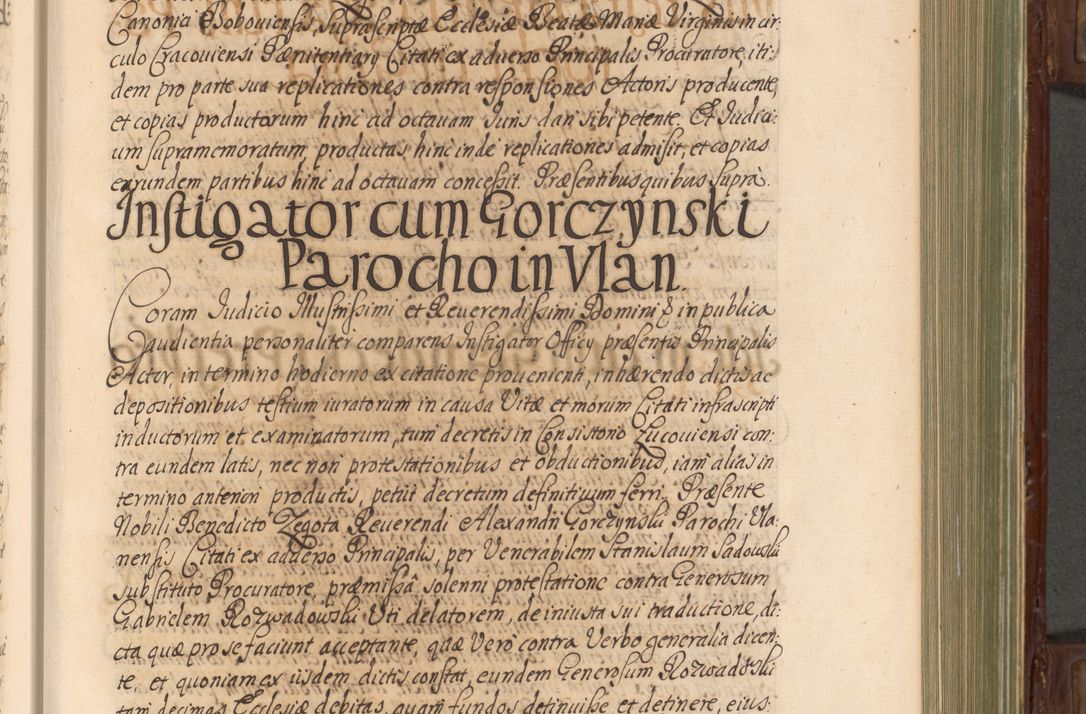 Canonia Boboviensis, supra scriptæ Ecclesiæ Beatæ Mariæ Virginis in cir:
culo Cracoviensi Pænitentiary Citati ex adverso Principalis Procuratore, iti:
dem pro parte sua replicationes contra responsiones Actoris producente,
et copias productorum hinc ad octavam Iuris dari sibi petente. Et Iudici:
um supramemoratum, productas hinc inde replicationes admisit, et copias
earundem partibus hinc ad octavam concessit. Præsentibus quibus supra.
Instigator cum Gorczynski
Parocho in Vlan.
Coram Iudicio Illustrissimi et Reverendissimi Domini & in publica
audientia personaliter comparens Instigator Officy præsentis Principalis
Actor, in termino hodierno ex citatione provenienti, inhærendo dictis ac
depositionibus testium iuratorum in causa Vitæ et morum Citati infrascripti
inductorum et examinatorum, tum decretis in Consistorio Lucoviensi con:
tra eundem latis, nec non protestationibus et obductionibus, iam alias in
termino anteriori productis, petiit decretum definitivum ferri. Præsente
Nobili Benedicto Zegota Reverendi Alexandri Gorczynski Parochi Vla:
nensis Citati ex adverso Principalis, per Venerabilem Stanislaum Sadowski
substituto Procuratore, præmissâ solenni protestatione contra Generosum
Gabrielem Rozwadowski Uti delatorem, de iniusta sui traductione, di:
cta quæ pro se faciunt acceptante, quæ Vero contra Verbo generalia dicen:
te, et quoniam ex iisdem dictis constat, eundem Generosum Rozwadowski
tam decimas Ecclesiæ debitas, quam fundos detinuisse et detinere, eius: